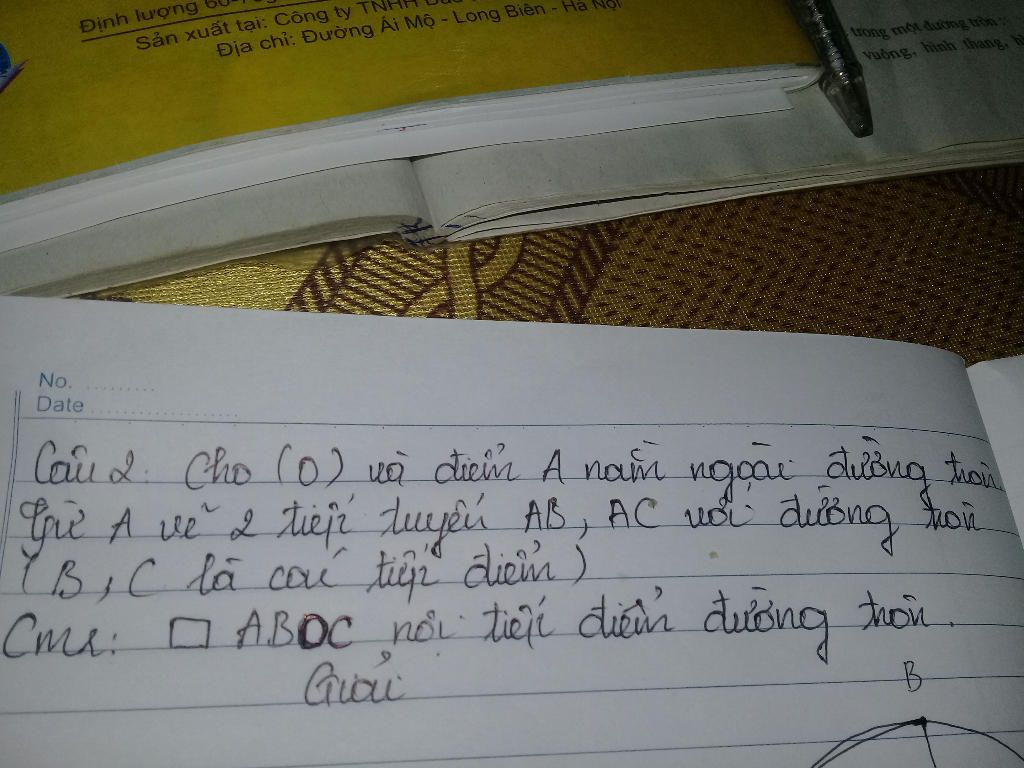 Sản xuất tại: Công ty TNHH
Địa chỉ: Đường Ái Mộ - Long Biên - Hà Nội
trong một đường tròn :
vuông, hình thang,
No. .........
Date ....................
Câu 2: Cho (O) và điểm A nằm ngoài đường tròn.
Từ A vẽ 2 tiếp tuyến AB, AC với đường tròn
(B, C là các tiếp điểm)
Cmr: □ ABOC nội tiếp điểm đường tròn.
Giải
B